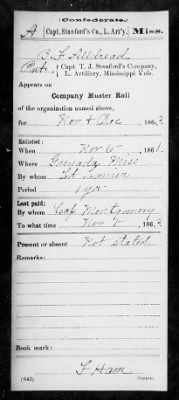 Confederate.
A | Capt. Stanford's Co., L. Art'y. | Miss.
B F Alldread
Pvt, Capt. T. J. Stanford's Company,
L. Artillery, Mississippi Vols.
Appears on
Company Muster Roll
of the organization named above,
for Nov & Dec, 1862
Enlisted:
When Nov 6, 1861
Where Grenada Miss
By whom Lt
Period 1 yr
Last paid:
By whom Capt Montgomery
To what time Nov 6, 1862
Present or absent Not stated
Remarks:
Book mark:
F Ham
(642) Copyist.